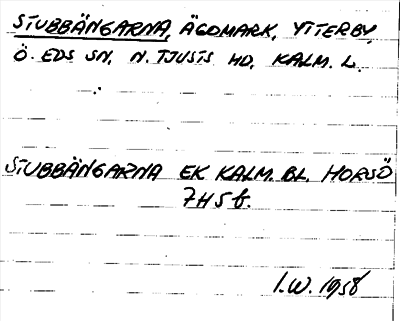 STUBBÄNGARNA, ÄGOMARK, YTTERBY,
Ö. EDS SN. N. TJUSTS HD. KALM. L.
STUBBÄNGARNA EK KALM. BL. HORSÖ
7H5f.
I.W. 1958